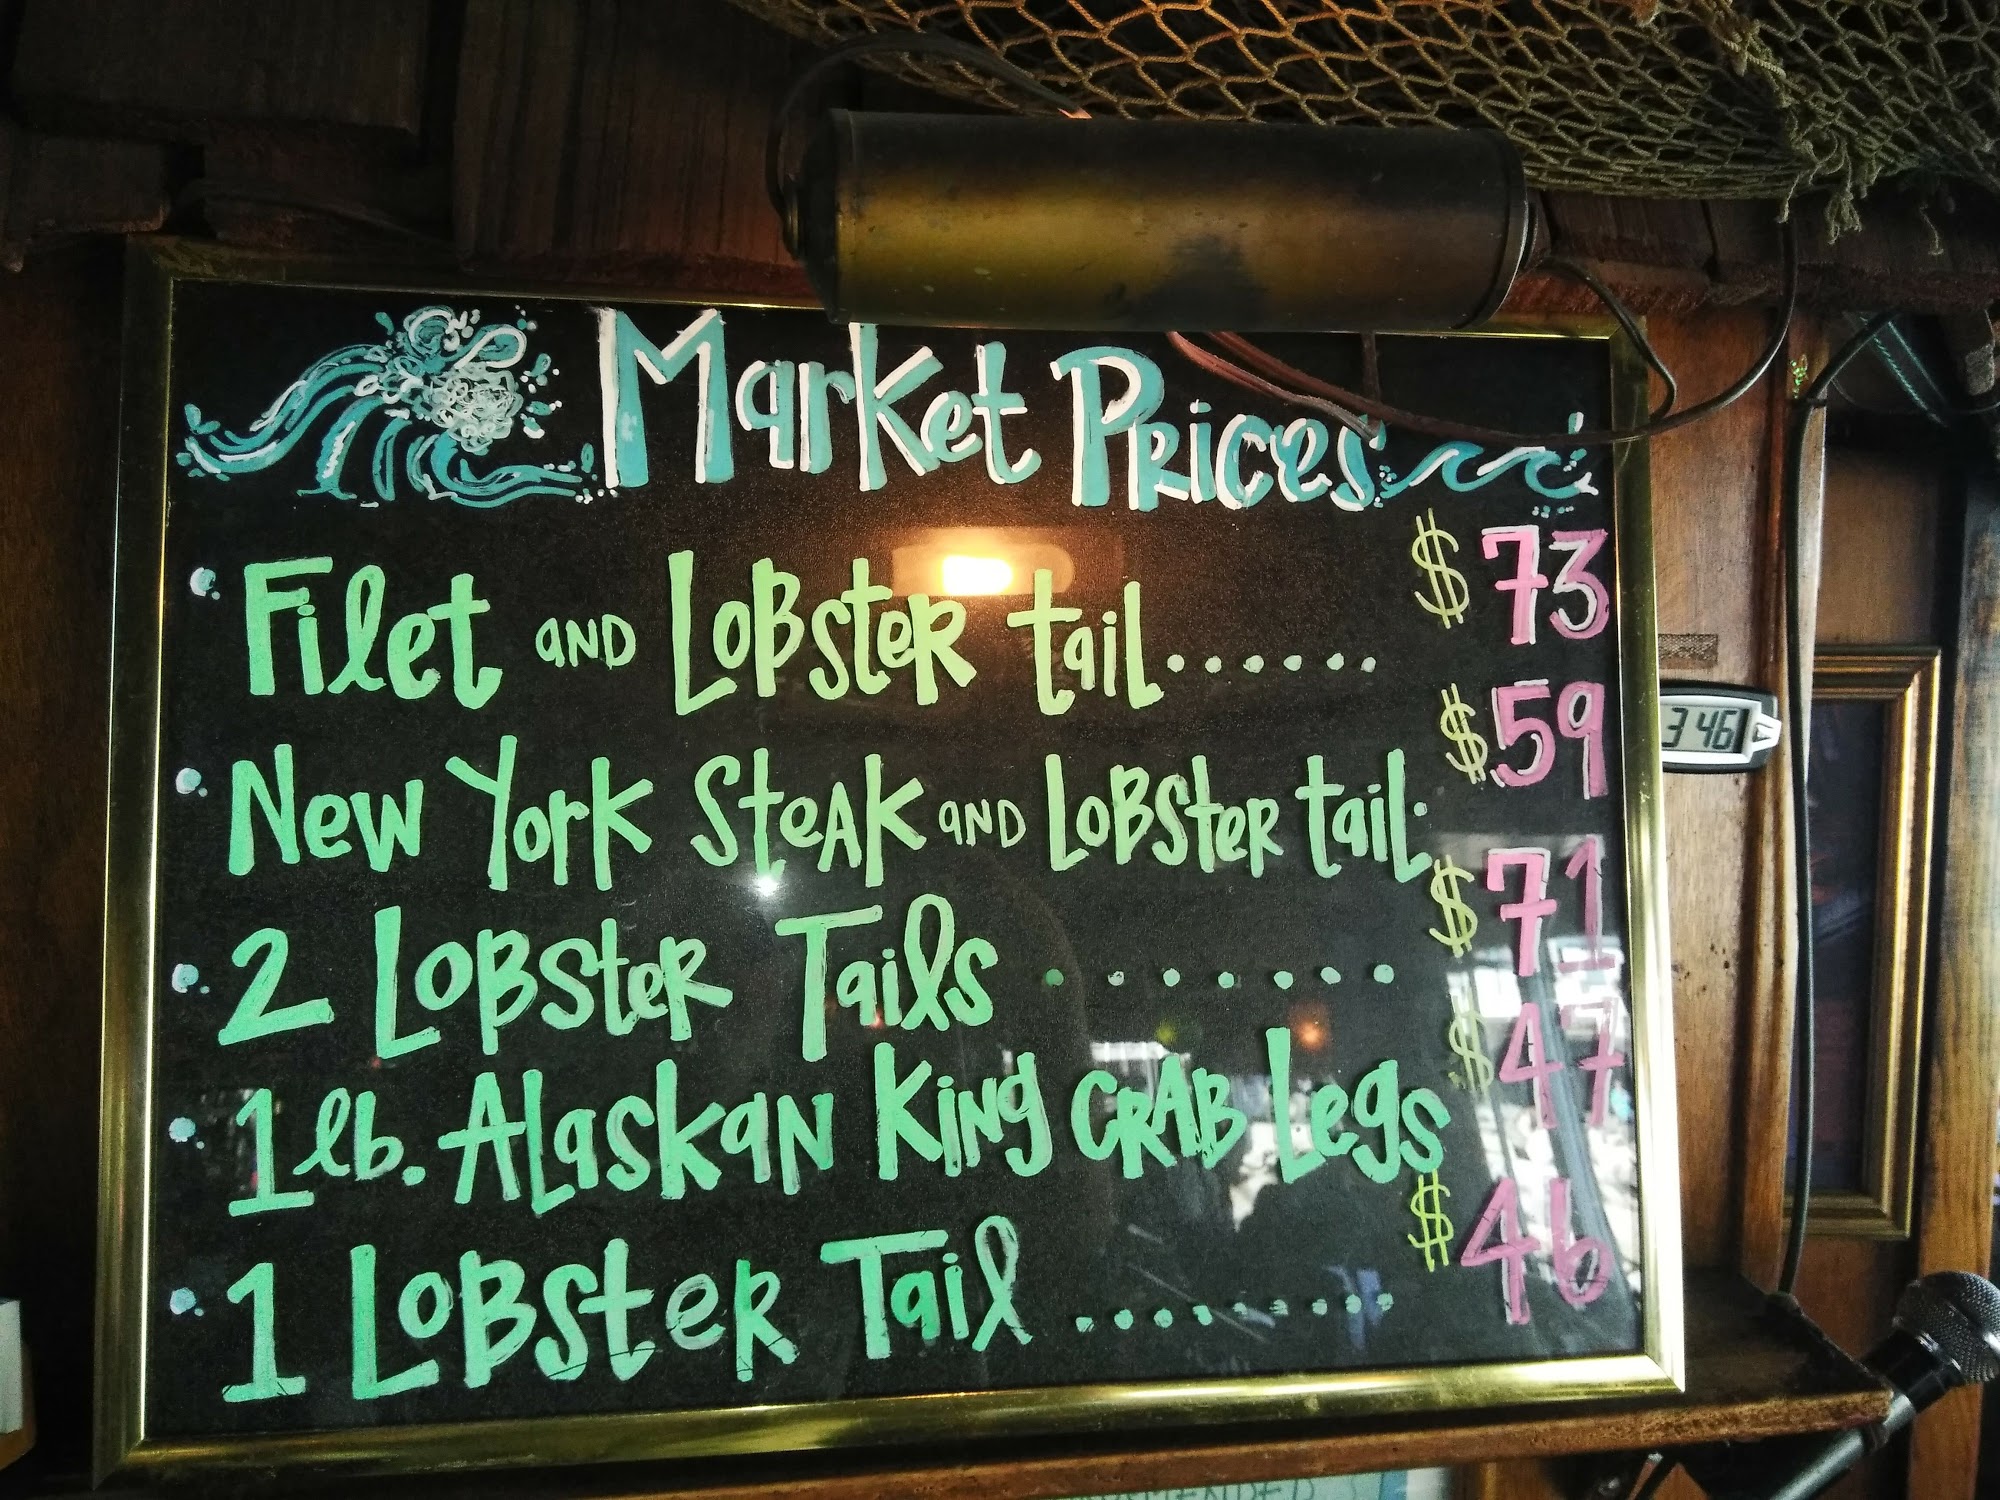 Market Prices
Filet and Lobster tail...... $73
New York Steak and Lobster tail. $59
2 Lobster Tails ....... $71
1 lb. Alaskan King Crab Legs $47
1 Lobster Tail ......... $46
3 46